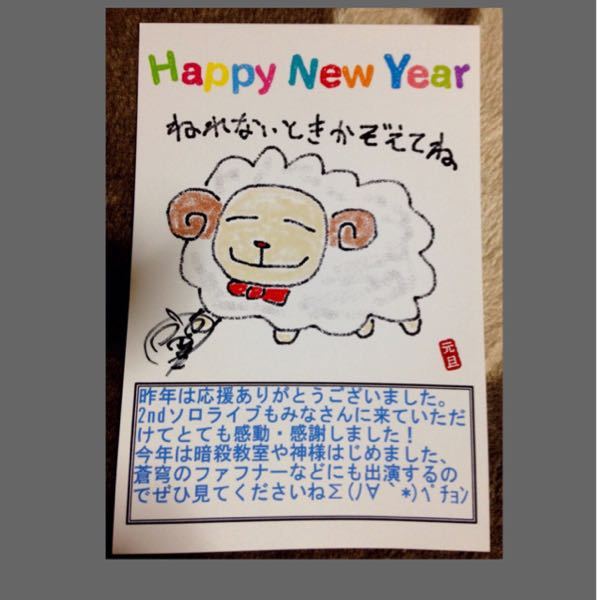 Happy New Year
ねれないときかぞえてね
元旦
昨年は応援ありがとうございました。
2ndソロライブもみなさんに来ていただ
けてとても感動・感謝しました！
今年は暗殺教室や神様はじめました、
蒼穹のファフナーなどにも出演するの
でぜひ見てくださいねΣ(ﾉ∀｀*)ﾍﾟﾁｮﾝ